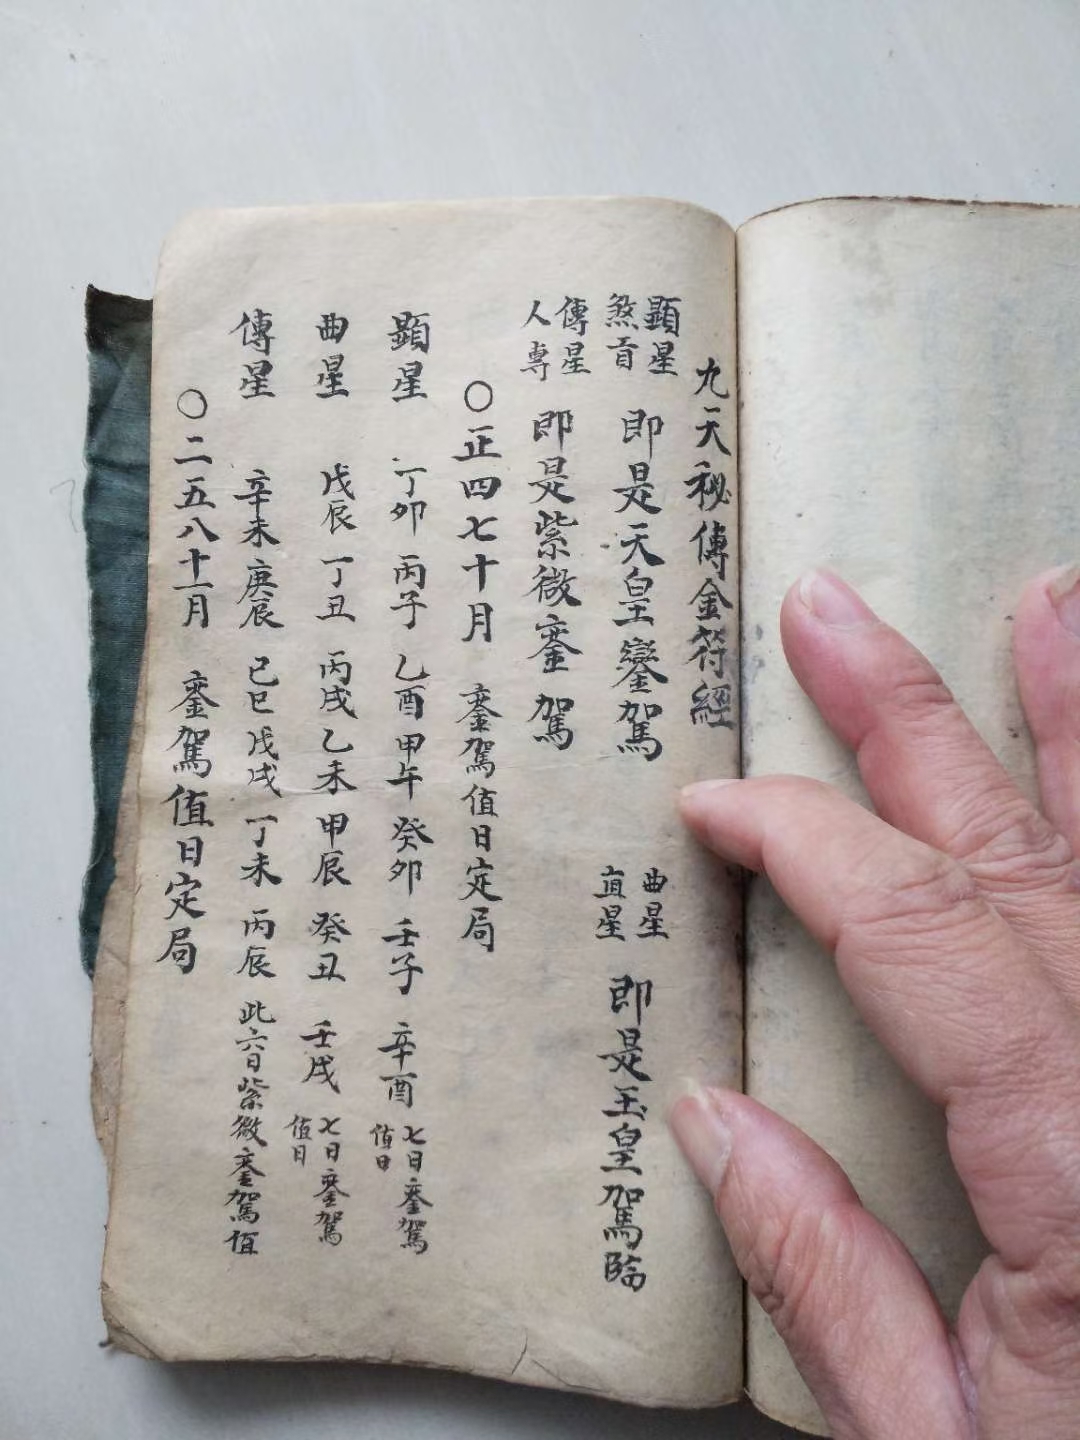 九天秘傳金符經
顯星
煞貢
即是天皇鑾駕
曲星
直星
即是玉皇駕臨
傳星
人專
即是紫微銮駕
〇正四七十月 銮駕值日定局
顯星 丁卯 丙子 乙酉 甲午 癸卯 壬子 辛酉 七日銮駕值日
曲星 戊辰 丁丑 丙戌 乙未 甲辰 癸丑 壬戌 七日銮駕值日
傳星 辛未 庚辰 己巳 戊戌 丁未 丙辰 此六日紫微銮駕值
〇二五八十一月 銮駕值日定局